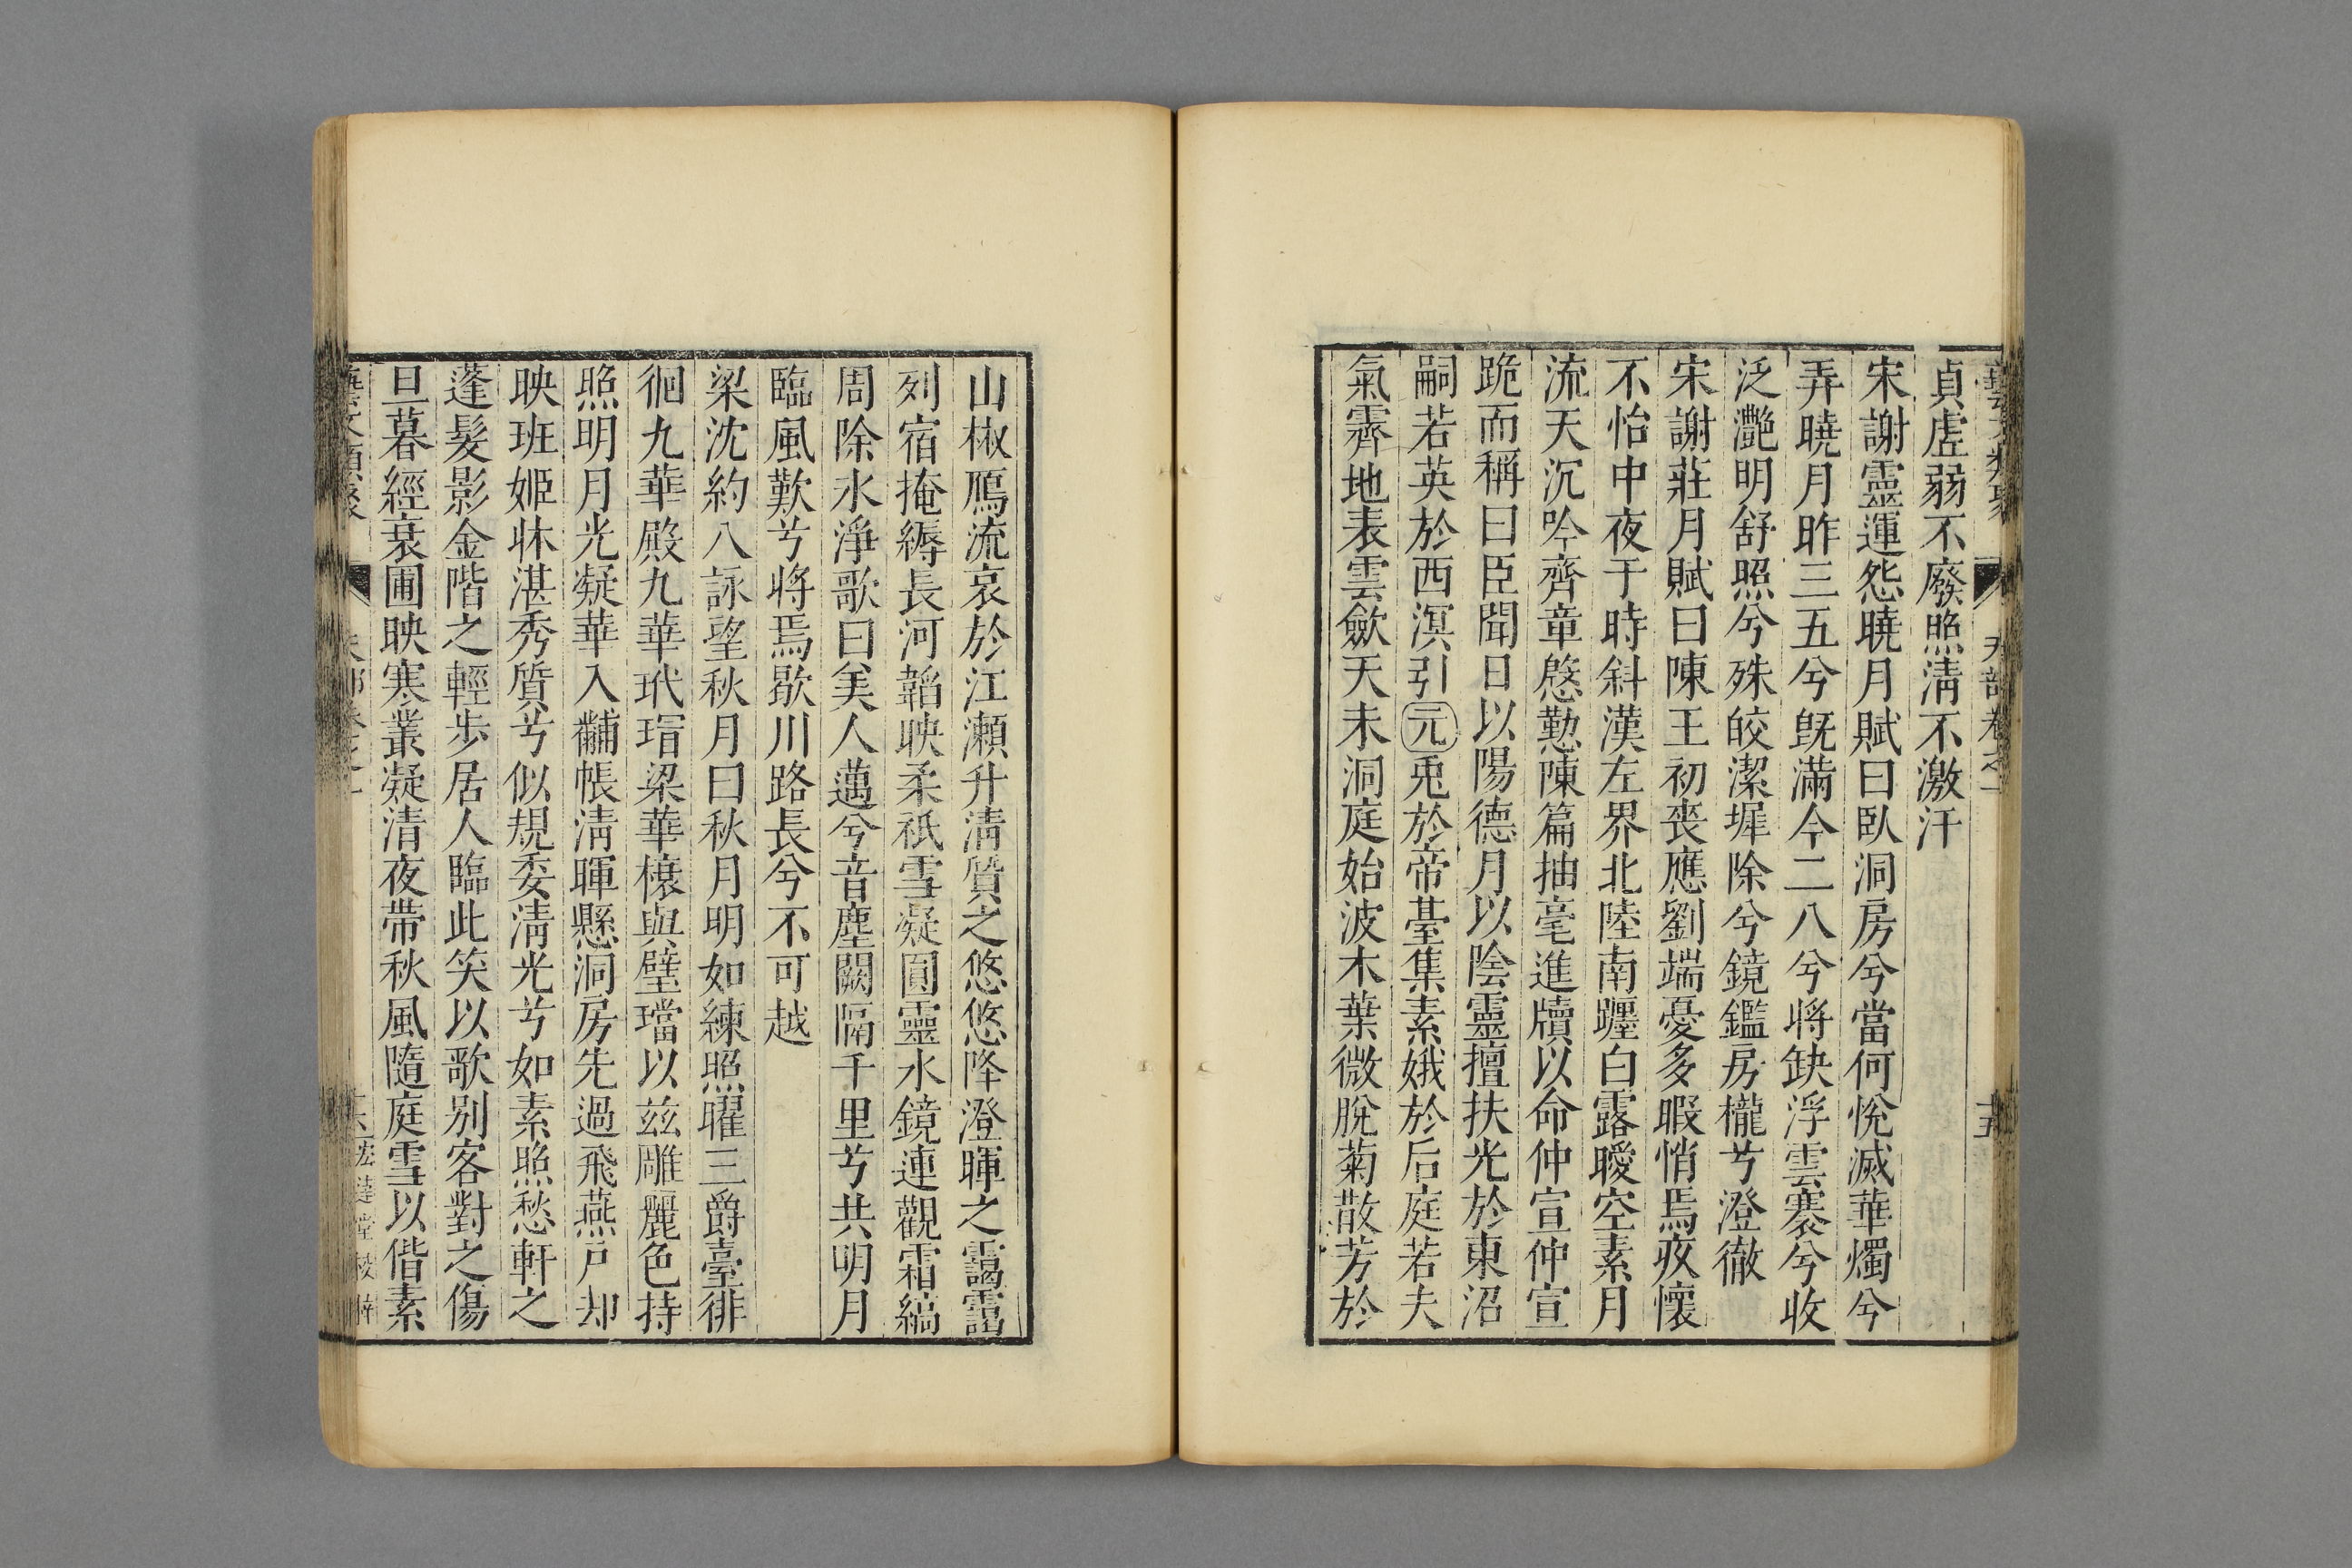 藝文類聚 天部卷之一 十五
貞虛弱不廢照淸不激汗
宋謝靈運怨曉月賦曰臥洞房兮當何悅滅華燭兮
弄曉月昨三五兮旣滿今二八兮將缺浮雲褰兮收
泛灔明舒照兮殊皎潔墀除兮鏡鑑房櫳兮澄徹
宋謝莊月賦曰陳王初喪應劉端憂多暇悄焉疚懷
不怡中夜于時斜漢左界北陸南躔白露曖空素月
流天沉吟齊章慇懃陳篇抽毫進牘以命仲宣仲宣
跪而稱曰臣聞日以陽德月以陰靈擅扶光於東沼
嗣若英於西溟引元兎於帝臺集素娥於后庭若夫
氣霽地表雲歛天末洞庭始波木葉微脫菊散芳於
山椒鴈流哀於江瀬升淸質之悠悠降澄暉之靄靄
列宿掩縟長河韜映柔祇雪凝圓靈水鏡連觀霜縞
周除氷淨歌曰美人邁兮音塵闕隔千里兮共明月
臨風歎兮將焉歇川路長兮不可越
梁沈約八詠望秋月曰秋月明如練照曜三爵臺徘
徊九華殿九華玳瑁梁華榱與壁璫以茲雕麗色持
照明月光凝華入黼帳淸暉懸洞房先過飛燕戶却
映班姬牀湛秀質兮似規委淸光兮如素照愁軒之
蓬髮影金階之輕步居人臨此笑以歌别客對之傷
旦暮經衰圃映寒叢凝清夜帶秋風隨庭雪以偕素
藝文類聚 天部卷之一 十六 宏達堂校梓